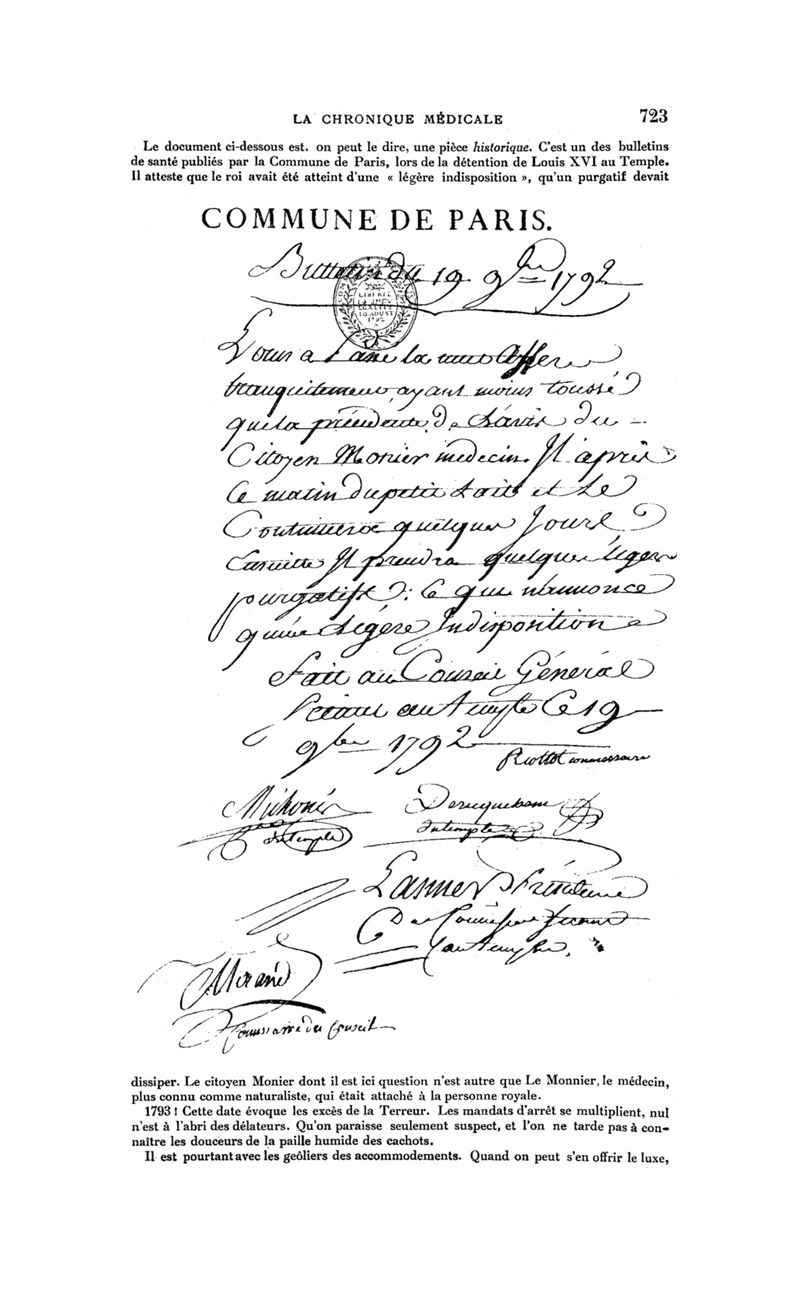 LA CHRONIQUE MÉDICALE 723
Le document ci-dessous est. on peut le dire, une pièce historique. C'est un des bulletins
de santé publiés par la Commune de Paris, lors de la détention de Louis XVI au Temple.
Il atteste que le roi avait été atteint d'une « légère indisposition », qu'un purgatif devait
COMMUNE DE PARIS.
du 19 9bre 1792
LIBERTÉ
EGALITÉ
10 AOUST
1792
Louis a passé la nuit assés
tranquilement ayant moins toussé
que la précédente. De L'avis du
Citoyen Monier médecin. Il a pris
Ce matin du petit Lait et Le
Continuera quelques Jours
Ensuite Il prendra quelques légers
purgatifs : Ce qui n'annonce
qu'une Légère Indisposition
Fait au Conseil Général
au Temple Ce 19
9bre 1792
commissaire
Michonis
du temple
du temple
au Temple.
Commissaire du Conseil
dissiper. Le citoyen Monier dont il est ici question n'est autre que Le Monnier, le médecin,
plus connu comme naturaliste, qui était attaché à la personne royale.
1793 ! Cette date évoque les excès de la Terreur. Les mandats d'arrêt se multiplient, nul
n'est à l'abri des délateurs. Qu'on paraisse seulement suspect, et l'on ne tarde pas à con-
naître les douceurs de la paille humide des cachots.
Il est pourtant avec les geôliers des accommodements. Quand on peut s'en offrir le luxe,